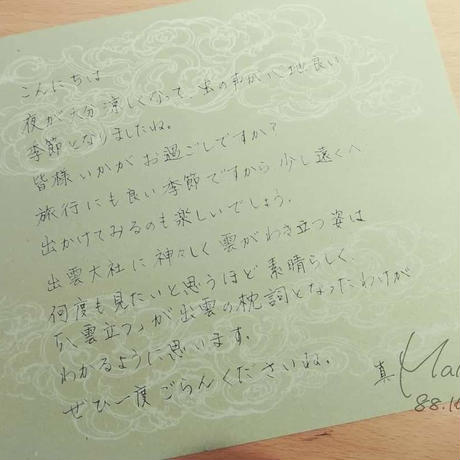 こんにちは
夜が大分涼しくなって、虫の声が心地良い
季節となりましたね。
皆様いかがお過ごしですか?
旅行にも良い季節ですから少し遠くへ
出かけてみるのも楽しいでしょう。
出雲大社に神々しく雲がわき立つ姿は
何度も見たいと思うほど素晴らしく、
「八雲立つ」が出雲の枕詞となったわけが
わかるように思います。
ぜひ一度ごらんくださいね。
真